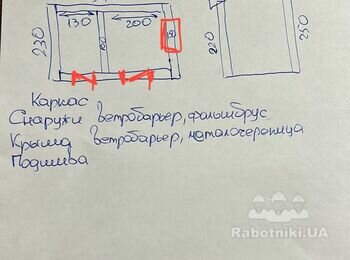 130 200
230
150
150
220
250
Каркас
Снаружи ветробарьер, фальшбрус
Крыша ветробарьер, металочерепица
Подшива
Rabotniki.UA